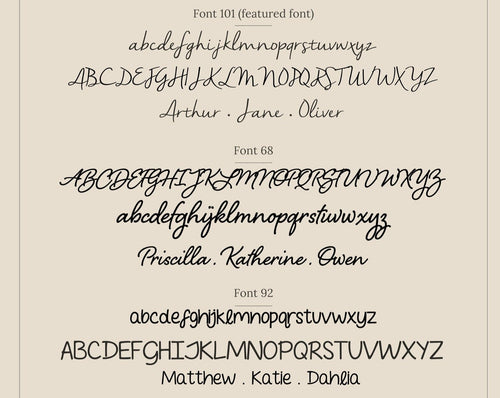 Font 101 (featured font)
abcdefghijklmnopqrstuvwxyz
ABCDEFGHIJKLMNOPQRSTUVWXYZ
Arthur . Jane . Oliver
Font 68
ABCDEFGHIJKLMNOPQRSTUVWXYZ
abcdefghijklmnopqrstuvwxyz
Priscilla . Katherine . Owen
Font 92
abcdefghijklmnopqrstuvwxyz
ABCDEFGHIJKLMNOPQRSTUVWXYZ
Matthew . Katie . Dahlia